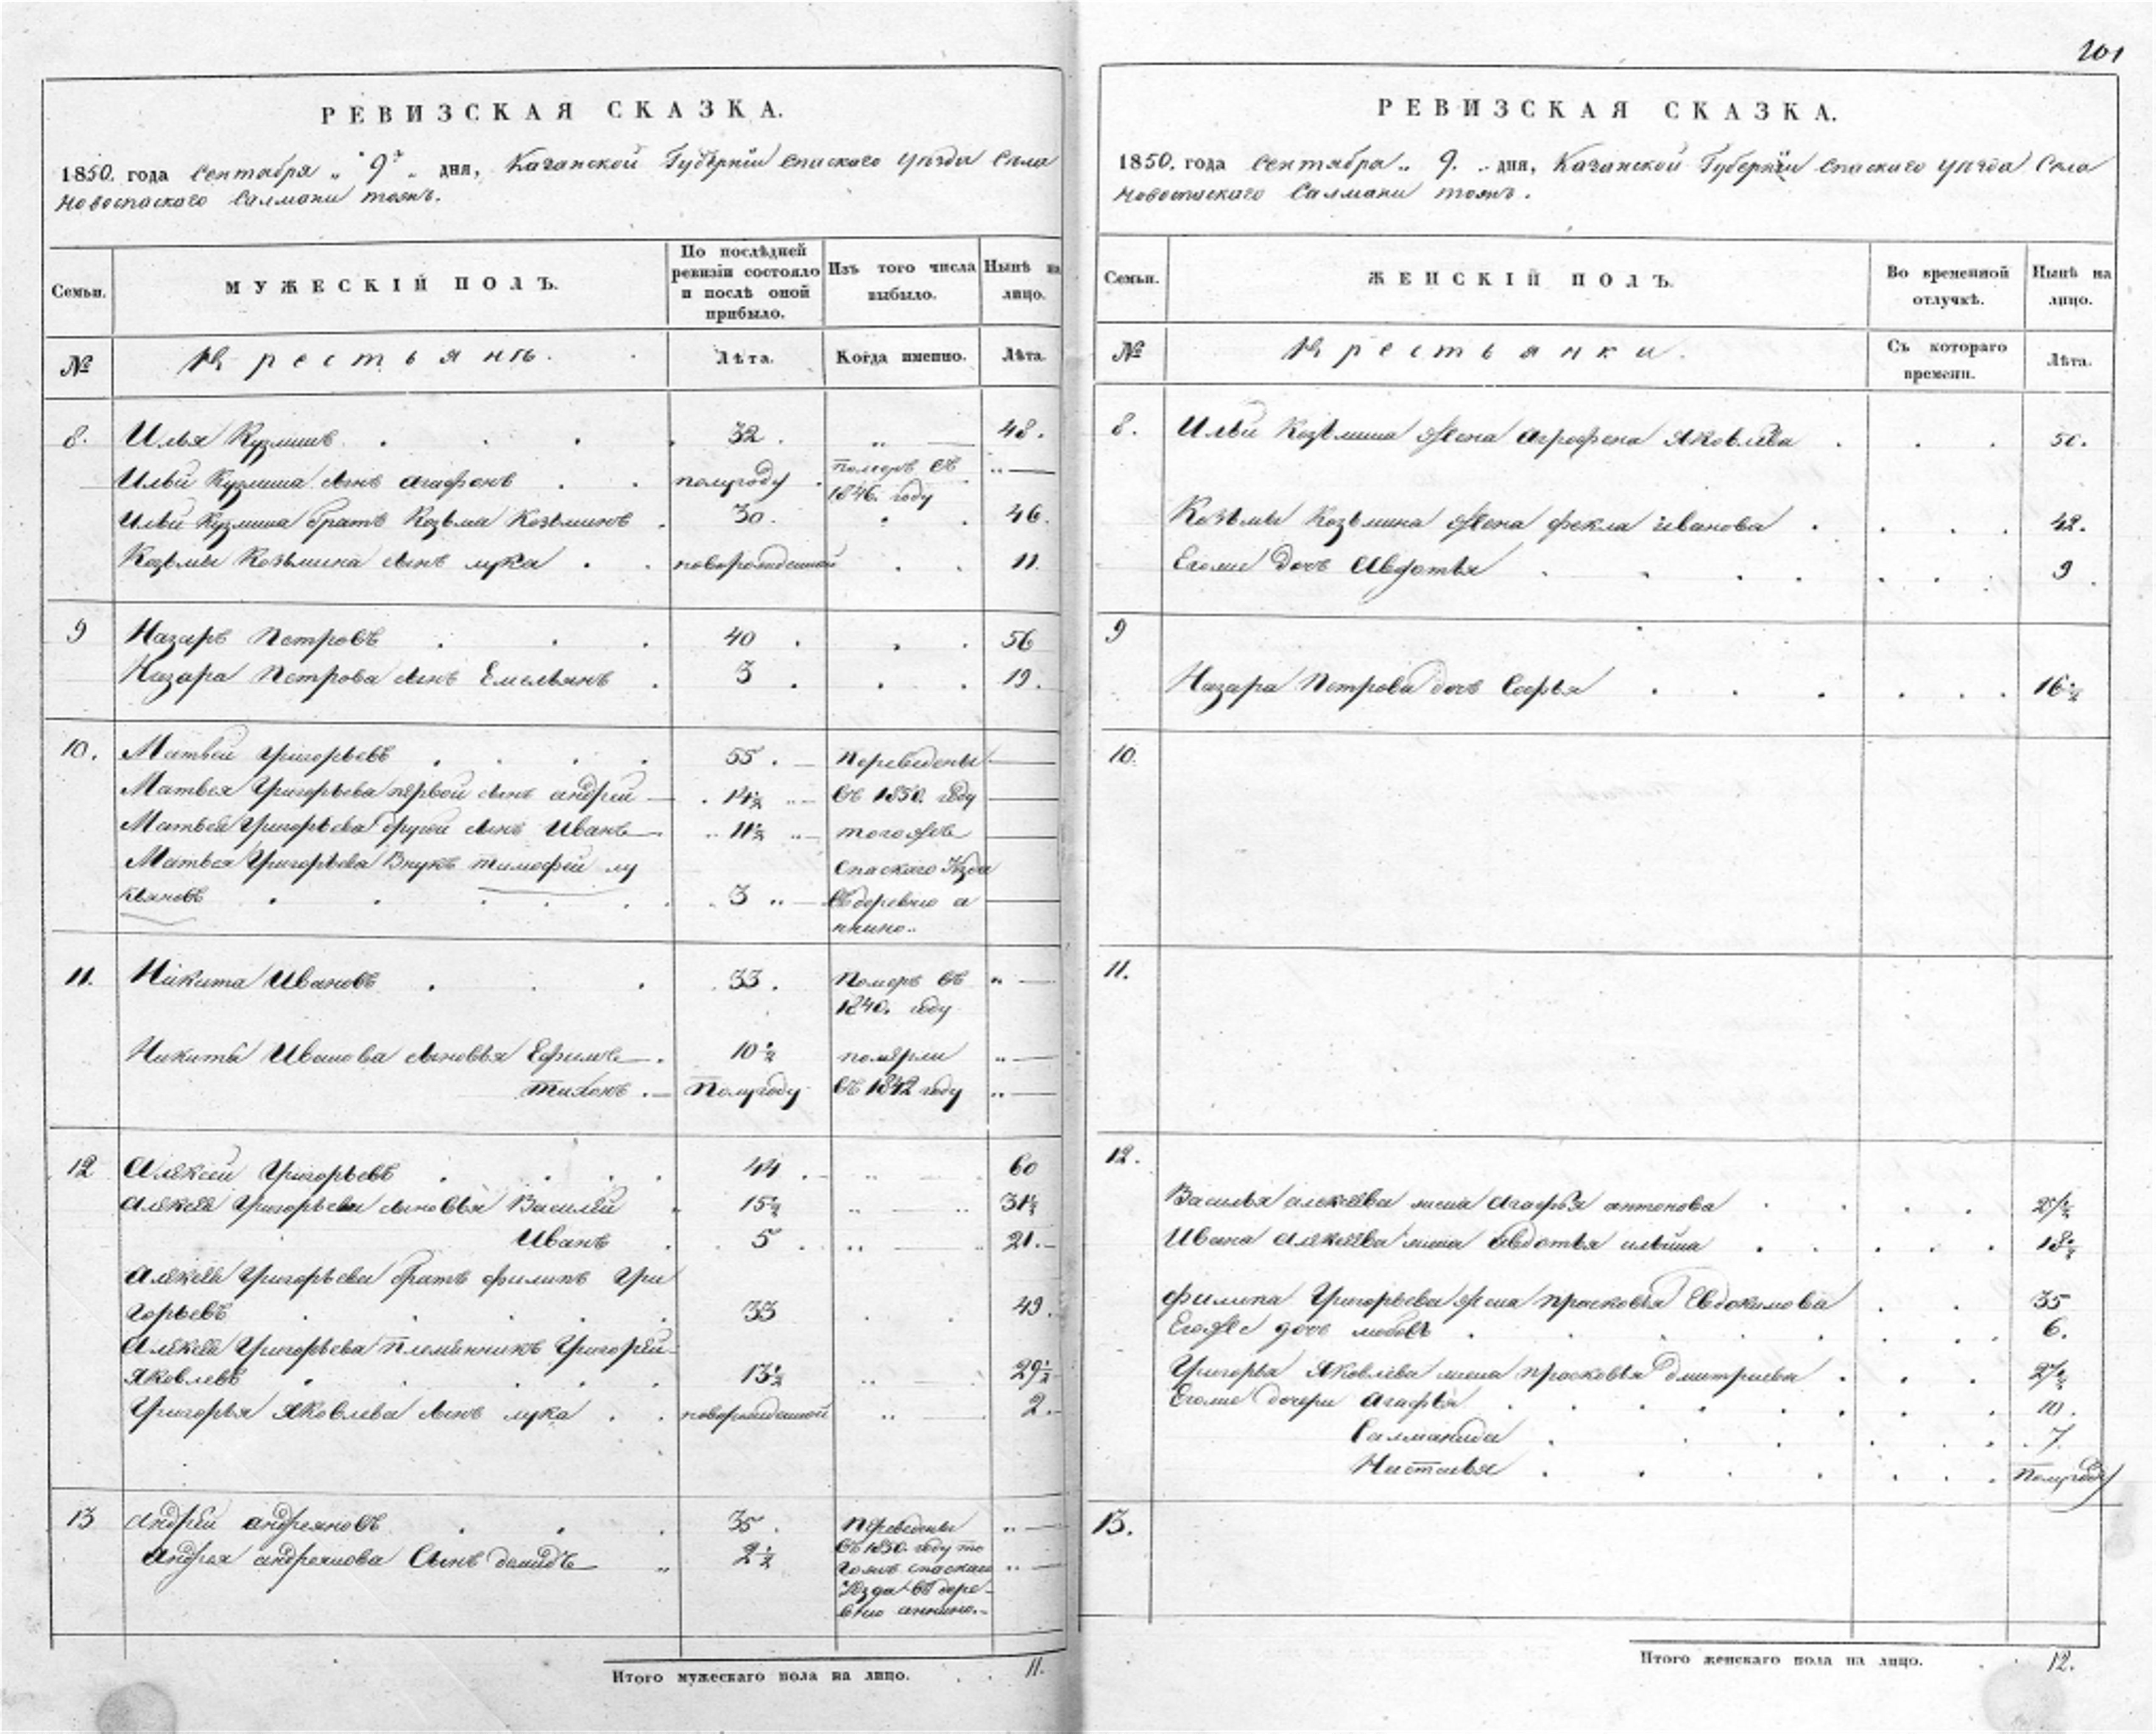 201
РЕВИЗСКАЯ СКАЗКА.
1850. года Сентября „ 9. „ дня, Казанской Губерніи Спаскаго уѣзда Села
Новоспаскаго Салмани тожъ.
Семьи. МУЖЕСКІЙ ПОЛЪ. По послѣдней ревизіи состояло и послѣ оной прибыло. Изъ того числа выбыло. Нынѣ на лицо.
№ Крестьянъ. Лѣта. Когда именно. Лѣта.
8. Илья Кузминъ 32 „ 48.
Ильи Кузмина сынъ Агафонъ полугоду померъ въ 1846. году
Ильи Кузмина братъ Козьма Козьминовъ 30. 46.
Козьмы Козьмина сынъ лука новорожденной 11.
9 Назаръ Петровъ 40 56
Назара Петрова сынъ Емельянъ 3 19.
10. Матвей Григорьевъ 55. Переведены
Матвея Григорьева первой сынъ андрей 14½ въ 1850. году
Матвея Григорьева другой сынъ Иванъ 11½ тогожъ
Матвея Григорьева Внукъ тимофей лу Спаскаго Уѣзда
кьяновъ 3 въ деревню а
ннино.
11. Никита Ивановъ 33. Померъ въ
1840. году
Никиты Иванова сыновья Ефимъ 10½ померли
тихонъ Полугоду въ 1842 году
12 Алякси Григорьевъ 44 60
Аляксея Григорьева сыновья Василей 15½ 31½
Иванъ 5 21.
Аляксея Григорьева братъ филипъ Гри
горьевъ 33 49.
Аляксея Григорьева племянникъ Григорей
Яковлевъ 13½ 29½
Григорья Яковлева сынъ лука новорожденной 2.
13 Андрей андреяновъ 35. Переведены
Андрея андреянова Сынъ демидъ 2½ въ 1850. году то
гожъ спаскаго
Уѣзда въ дере-
вню аннино.
Итого мужескаго пола на лицо. 11.
РЕВИЗСКАЯ СКАЗКА.
1850. года Сентября „ 9. „ дня, Казанской Губерніи Спаскаго уѣзда Села
Новоспаскаго Салмани тожъ.
Семьи. ЖЕНСКІЙ ПОЛЪ. Во временной отлучкѣ. Нынѣ на лицо.
№ Крестьянки. Съ котораго времени. Лѣта.
8. Ильи Козьмина жена Агрофена Яковлева 50.
Козьмы Козьмина жена фекла иванова 42.
Егоже дочь Авдотья 9
9
Назара Петрова дочь Софья 16½
10.
11.
12.
Василья алексеева жена Агафья антонова
Ивана Аляксеева жена авдотья ильина 18½
филипа Григорьева жена прасковья Евдокимова 35
Егоже дочь любовь 6.
Григорья Яковлева жена прасковья дмитриева
Егоже дочери Агафья 10.
Саламанида 7
Настасья Полугоду
13.
Итого женскаго пола на лицо. 12.